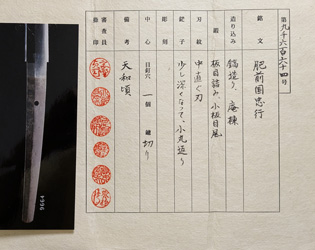 第九千六百六十四号
銘文
肥前国忠行
造り込み
鎬造り、庵棟
鍛
板目詰み、小板目風
刃紋
中直ぐ刃
鋩子
少し深くなって、小丸返り
彫刻
中心
目釘穴 一個 鑢 切り
備考
天和頃
審査員
9664